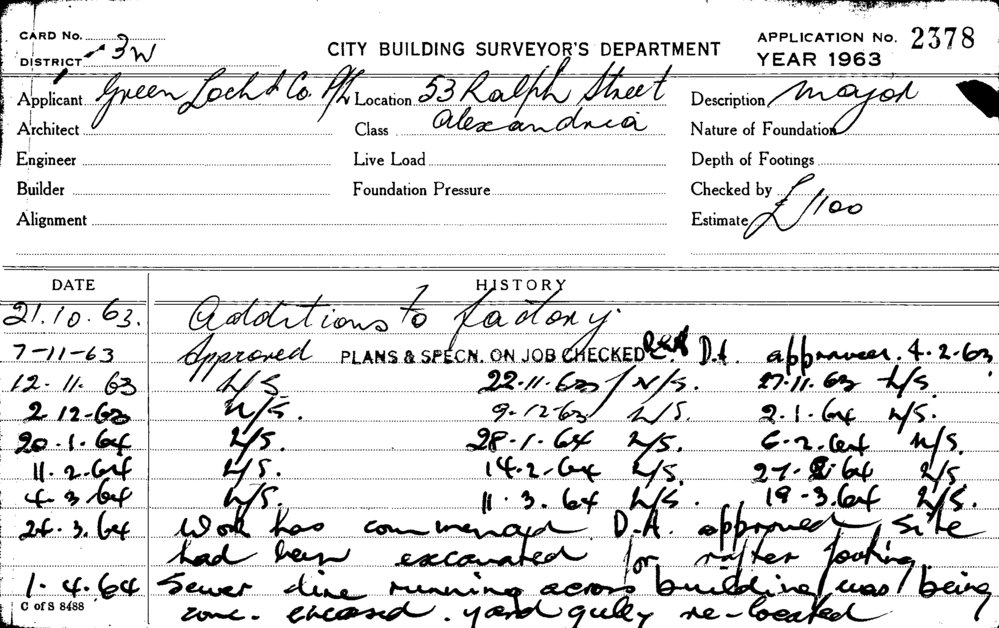 CARD No.
DISTRICT 3W
CITY BUILDING SURVEYOR'S DEPARTMENT
APPLICATION No. 2378
YEAR 1963
Applicant Green Loch & Co. P/L Location 53 Ralph Street Description Major
Architect Class Alexandria Nature of Foundation
Engineer Live Load Depth of Footings
Builder Foundation Pressure Checked by
Alignment Estimate £1100
DATE HISTORY
21.10.63. Additions to factory.
7-11-63 Approved PLANS & SPECN. ON JOB CHECKED D.A. approved. 4-2-63
12.11.63 N/S. 22.11.63 N/S. 27.11.63 N/S
2 12-63 N/S. 9-12-63 N/S. 2.1.64 N/S.
20.1.64 N/S. 28.1.64 N/S. 6-2-64 N/S.
11.2.64 N/S. 14-2-64 N/S. 27-2-64 N/S.
4-3-64 N/S. 11.3.64 N/S. 19-3-64 N/S.
24.3.64 Work has commenced D.A. approved Site
had been excavated for footing
1.4.64 Sewer line running across building was being
conc. encased. yard gully re-located
C of S 8488